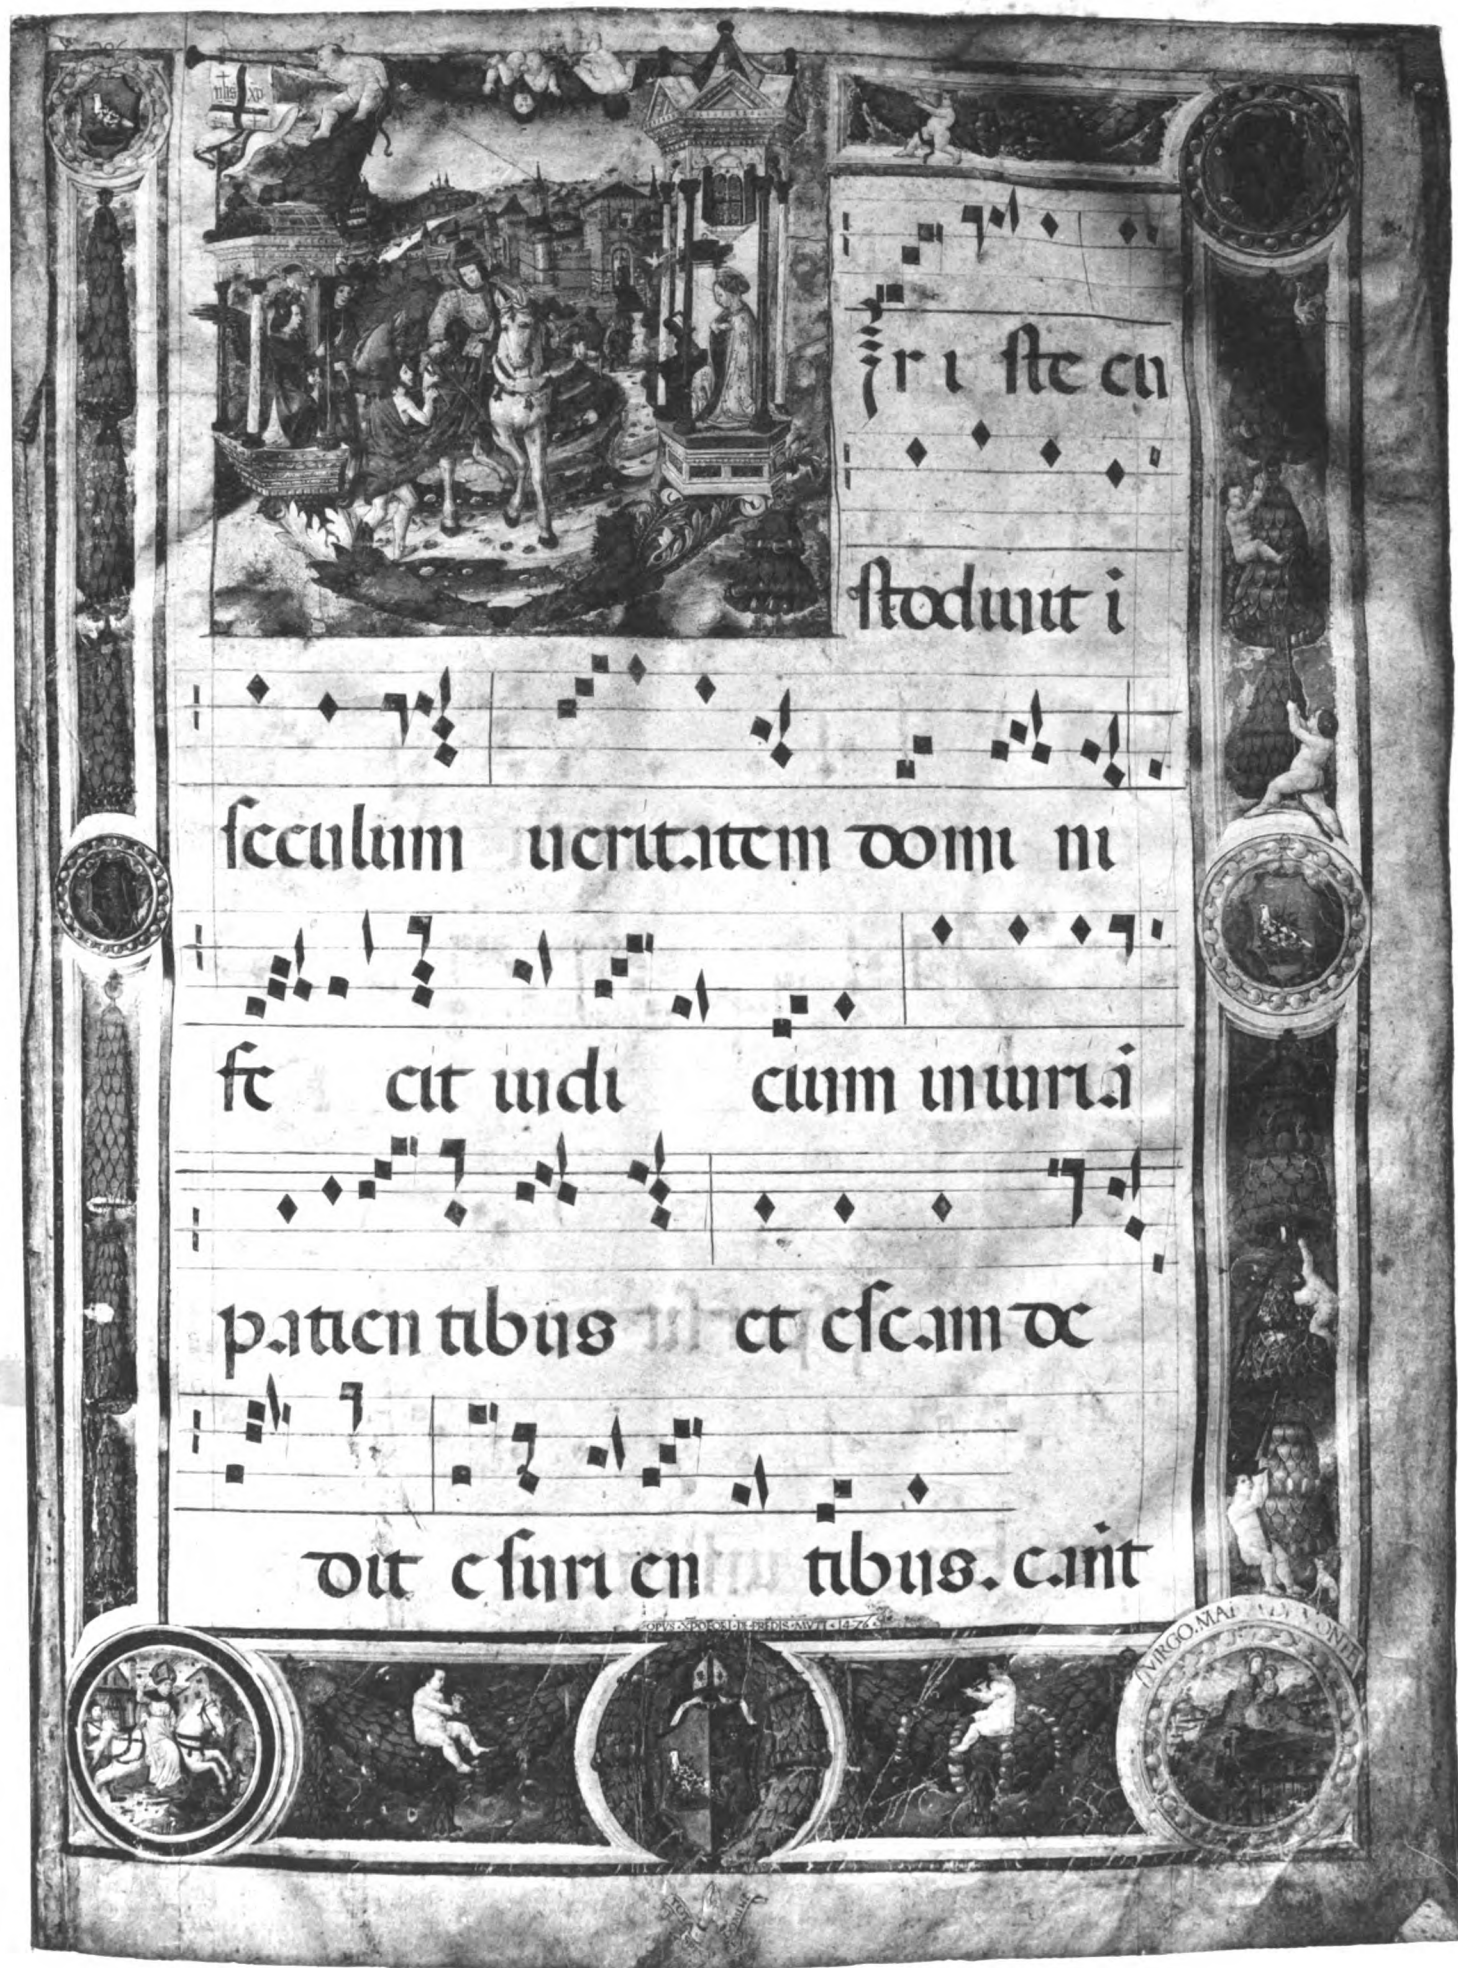 r i ste cu
stodiunt ī
seculum ueritatem domi ni
fe cit iudi cium iniuriā
patien tibus et escam de
dit esuri en tibus. cant̄
OPVS XPOFORI DE PREDIS MVTI 1476
VIRGO.